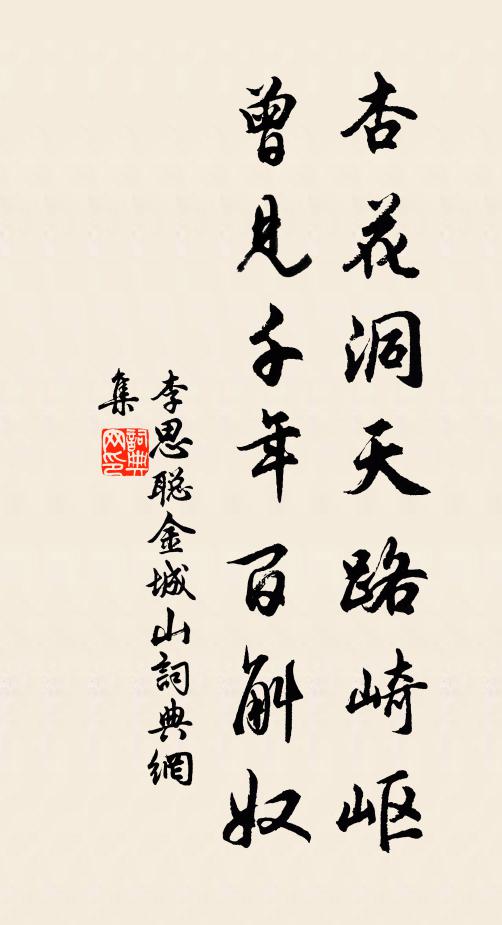 杏花洞天路崎岖
曾见千年百斛奴
李思聪金城山詞典網
集
詞典
网印